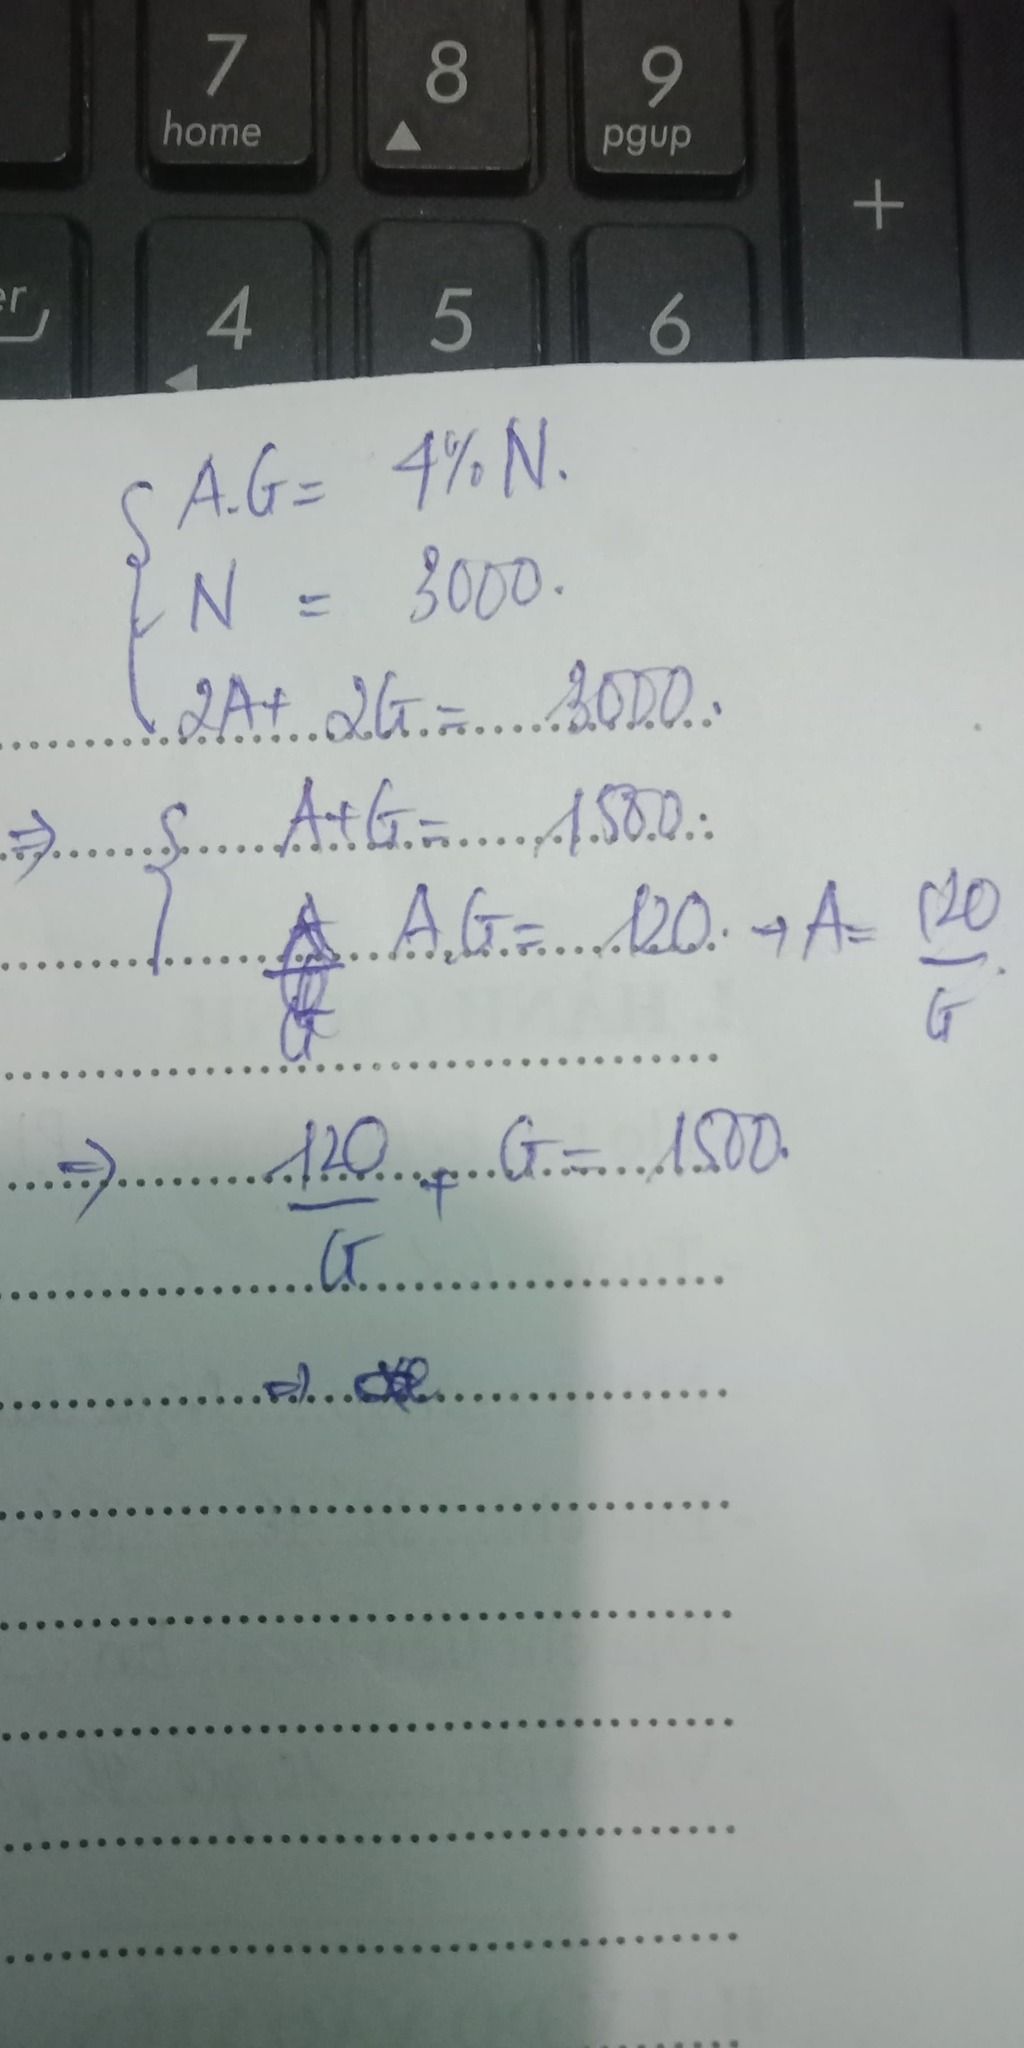 7 8 9
home ▲ pgup
+
4 5 6
◀
A.G = 4% N.
N = 3000.
2A + 2G = 3000.
⇒ A+G = 1500.
A.G = 120. → A = 120/G.
⇒ 120/G + G = 1500.
⇒